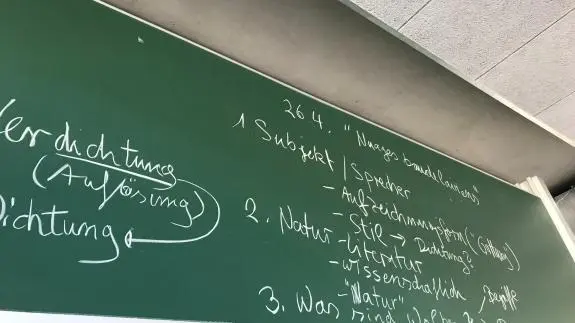 Verdichtung
(Auflösung)
Dichtung
26.4. "Nuages baudelairiens"
1 Subjekt / Sprecher
- Aufzeichnungsform ("Gattung)
- Stil → Dichtung?
2. Natur - Literatur
- wissenschaftlich, Begriffe
- "Natur"
3. Was sind